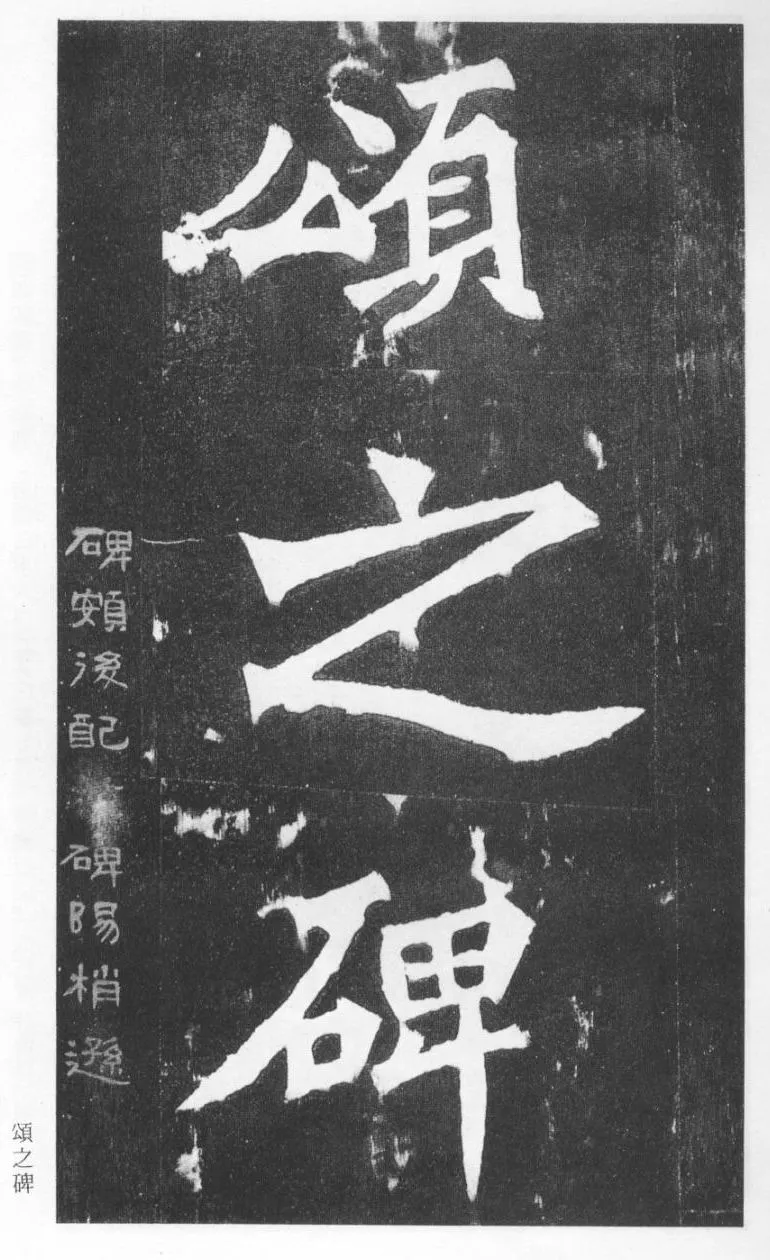 頌之碑
碑頞後配 碑陽梢遜
頌之碑